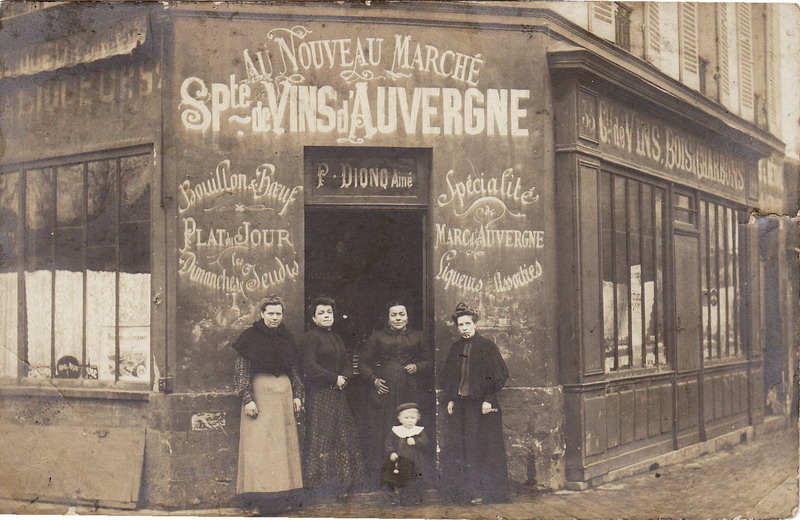 AU NOUVEAU MARCHÉ
Spté de VINS d'AUVERGNE
P. DIONQ Ainé
Bouillon & Bœuf
PLAT du JOUR
les
Dimanches & Jeudis
Spécialité
de
MARC d'AUVERGNE
Liqueurs Assorties
33
Cce de VINS, BOIS & CHARBONS
LIQUEURS